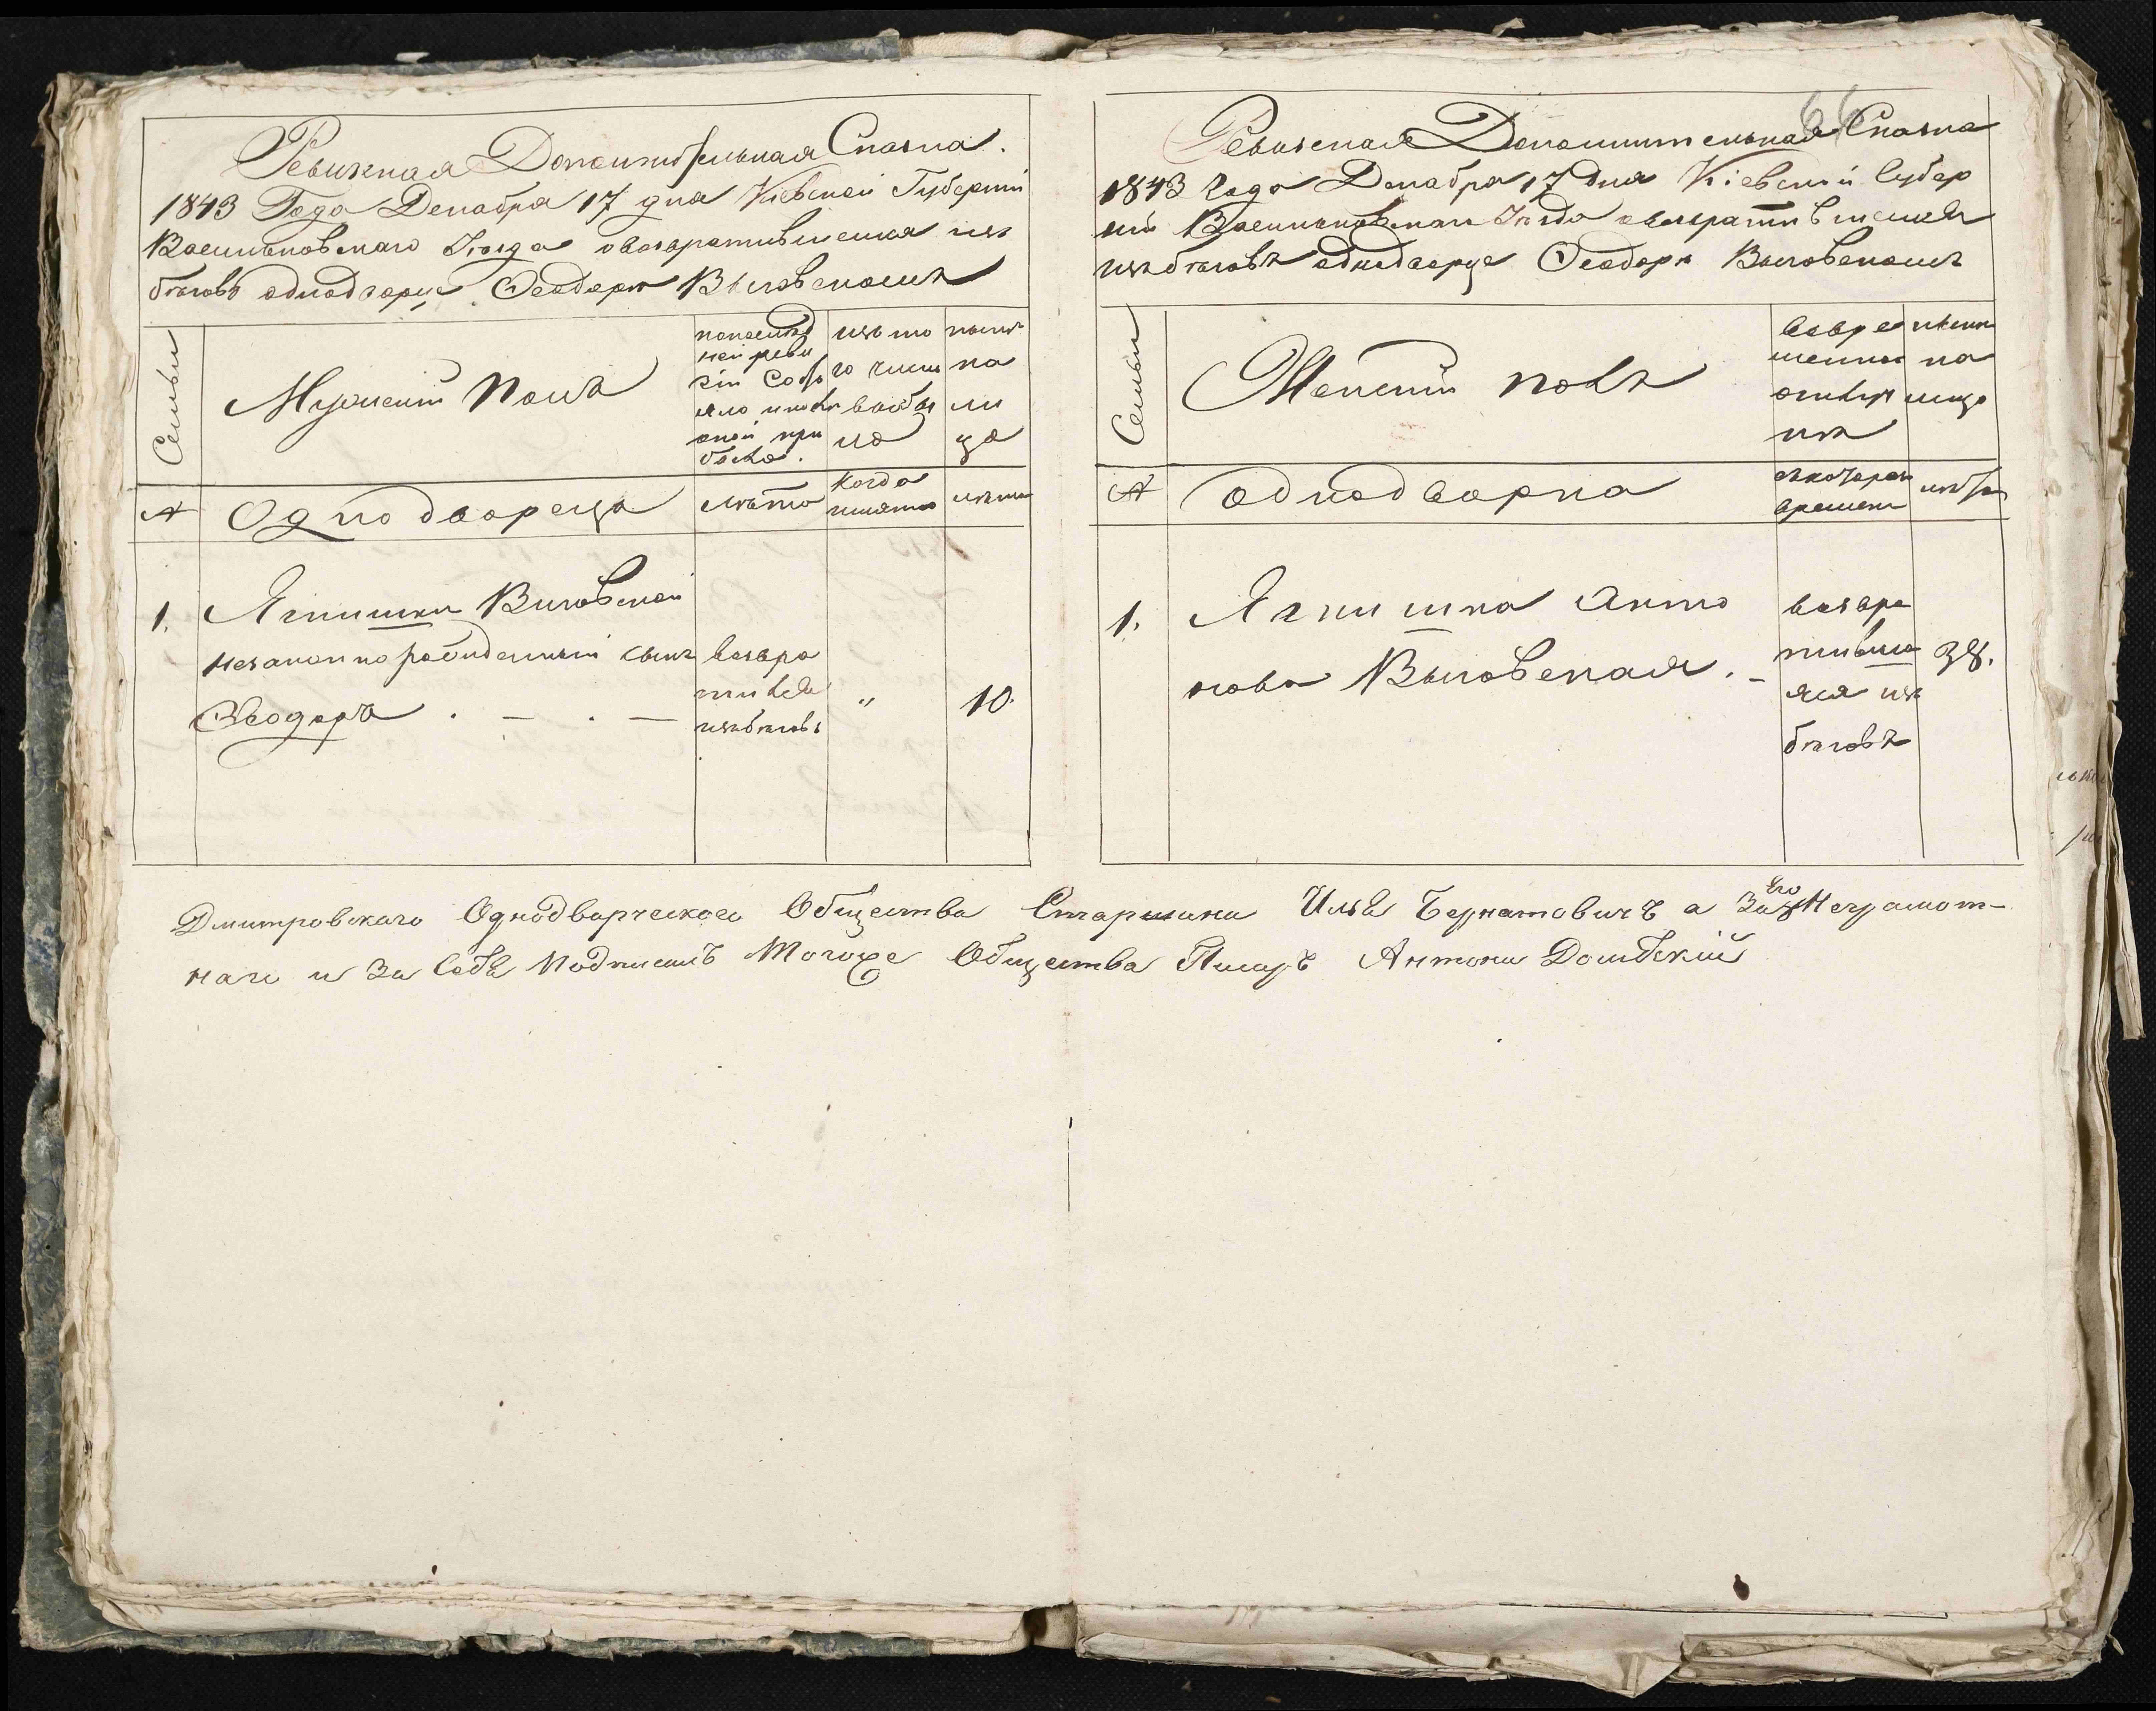 Ревизская Дополнительная Сказка.
1843 Года Декабря 17 дня Кіевской Губерніи
Васильковского Уезда о возвратившемся изъ
бѣговъ однодворце Ѳеодоре Выговскомъ
Семьи
Мужеский полъ
по последней ревизіи состояло и после оной прибыло.
изъ того числа выбыло
ныне на лицо
№
Однодворецъ
лѣта
когда именно
лѣта
1.
Ягнишки Выговской
незаконнорожденный сынъ
Ѳеодоръ . — . —
возвратился изъ бѣговъ
"
10.
66
Ревизская Дополнительная Сказка
1843 Года Декабря 17 дня Кіевской Губер
ніи Васильковского Уезда о возвратившемся
изъ бѣговъ однодворце Ѳеодоре Выговскомъ
Семьи
Женский полъ
во временной отлучке
ныне на лицо
№
однодворка
съ котораго времени
лѣта
1.
Ягнишка Анто
нова Выговская . –
возвратившаяся изъ бѣговъ
38.
Дмитровскаго Однодворческого Общества Старшина Илья Бернатовичъ а За Его Неграмот-
наго и За Себя Подписалъ Тогоже Общества Писарь Антони